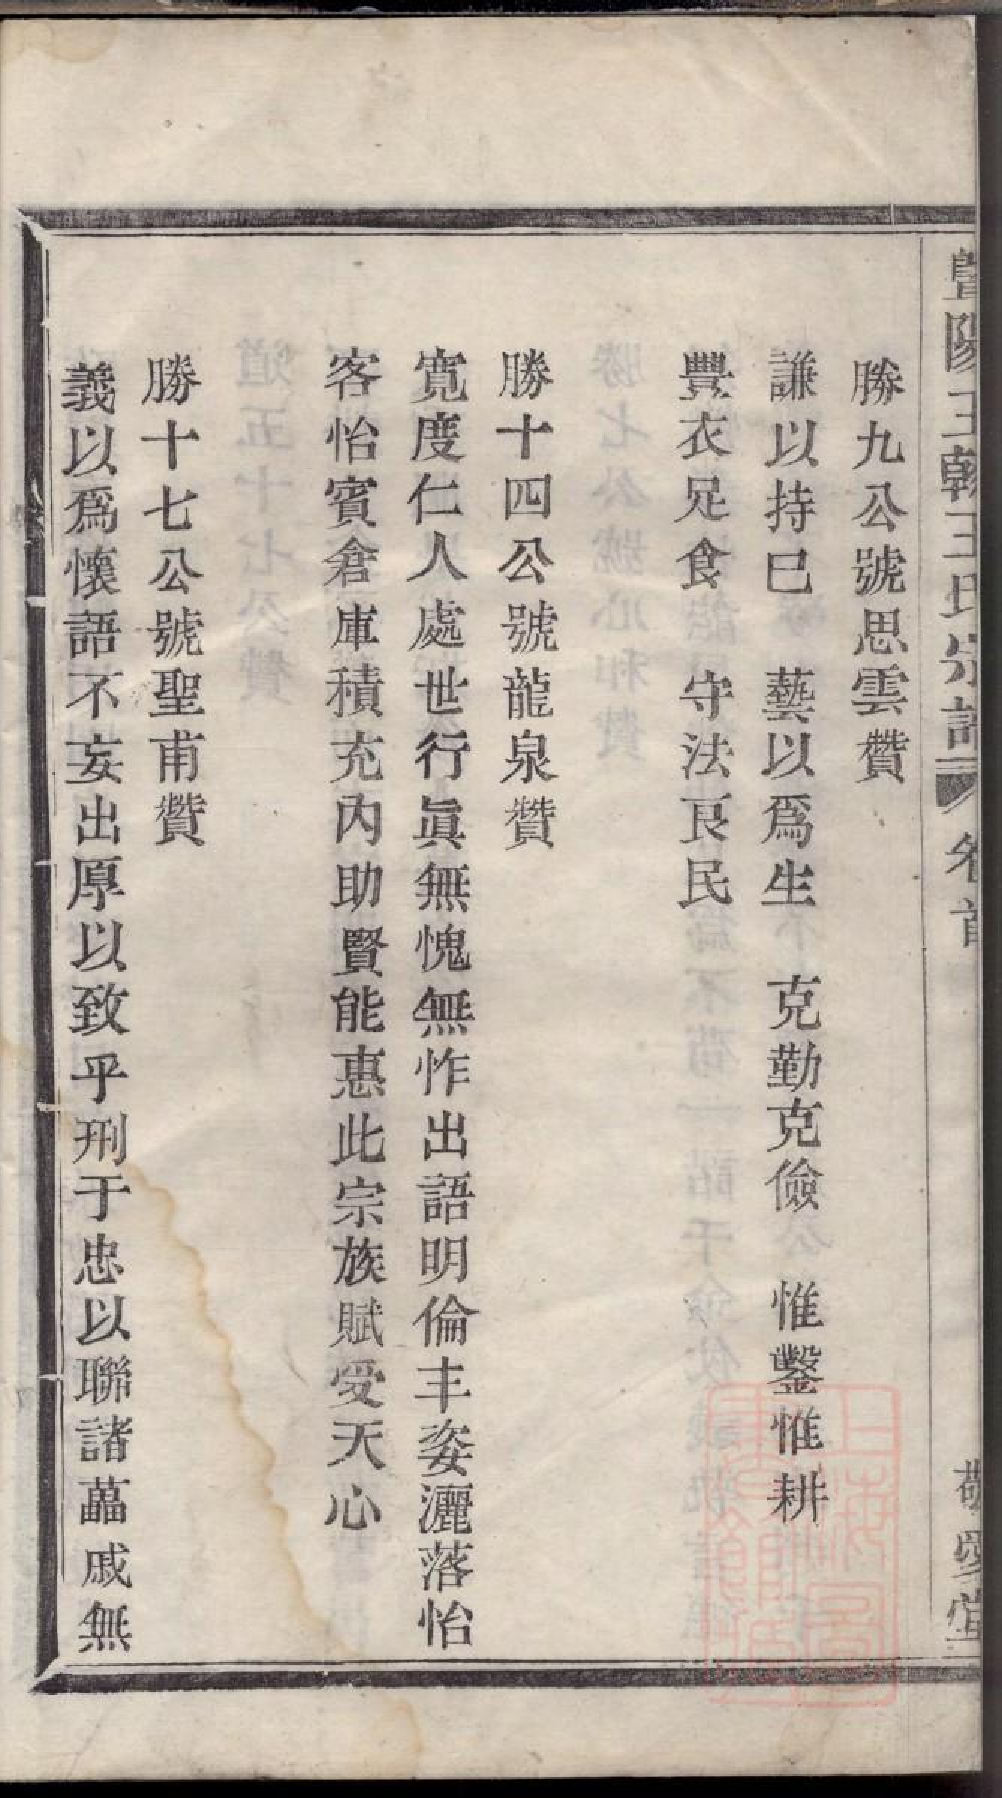 暨陽王翰王氏宗譜 卷首 敬愛堂
勝九公號思雲贊
謙以持巳 藝以爲生 克勤克儉 惟鑿惟耕
豐衣足食 守法良民
勝十四公號龍泉贊
寬度仁人處世行眞無愧無怍出語明倫丰姿灑落怡
客怡賓倉庫積充內助賢能惠此宗族賦受天心
勝十七公號聖甫贊
義以爲懷語不妄出厚以致乎刑于忠以聯諸藟戚無